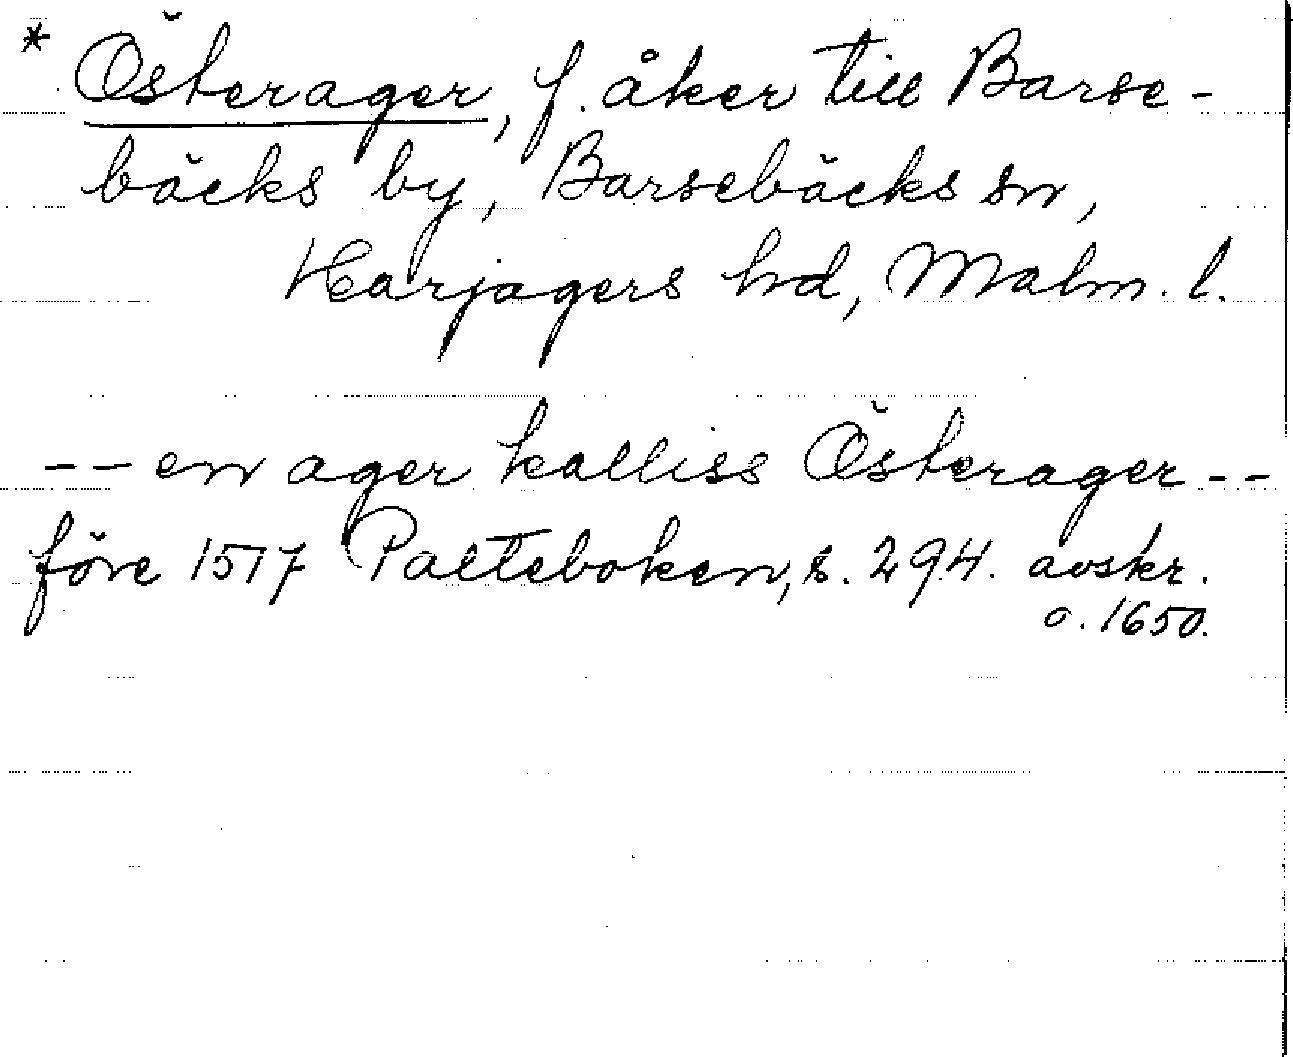 * Österager, f. åker till Barse-
bäcks by, Barsebäcks sn,
Harjagers hd, Malm. l.
-- en ager kalliss Österager --
före 1517 Palteboken, s. 294. avskr.
o. 1650.